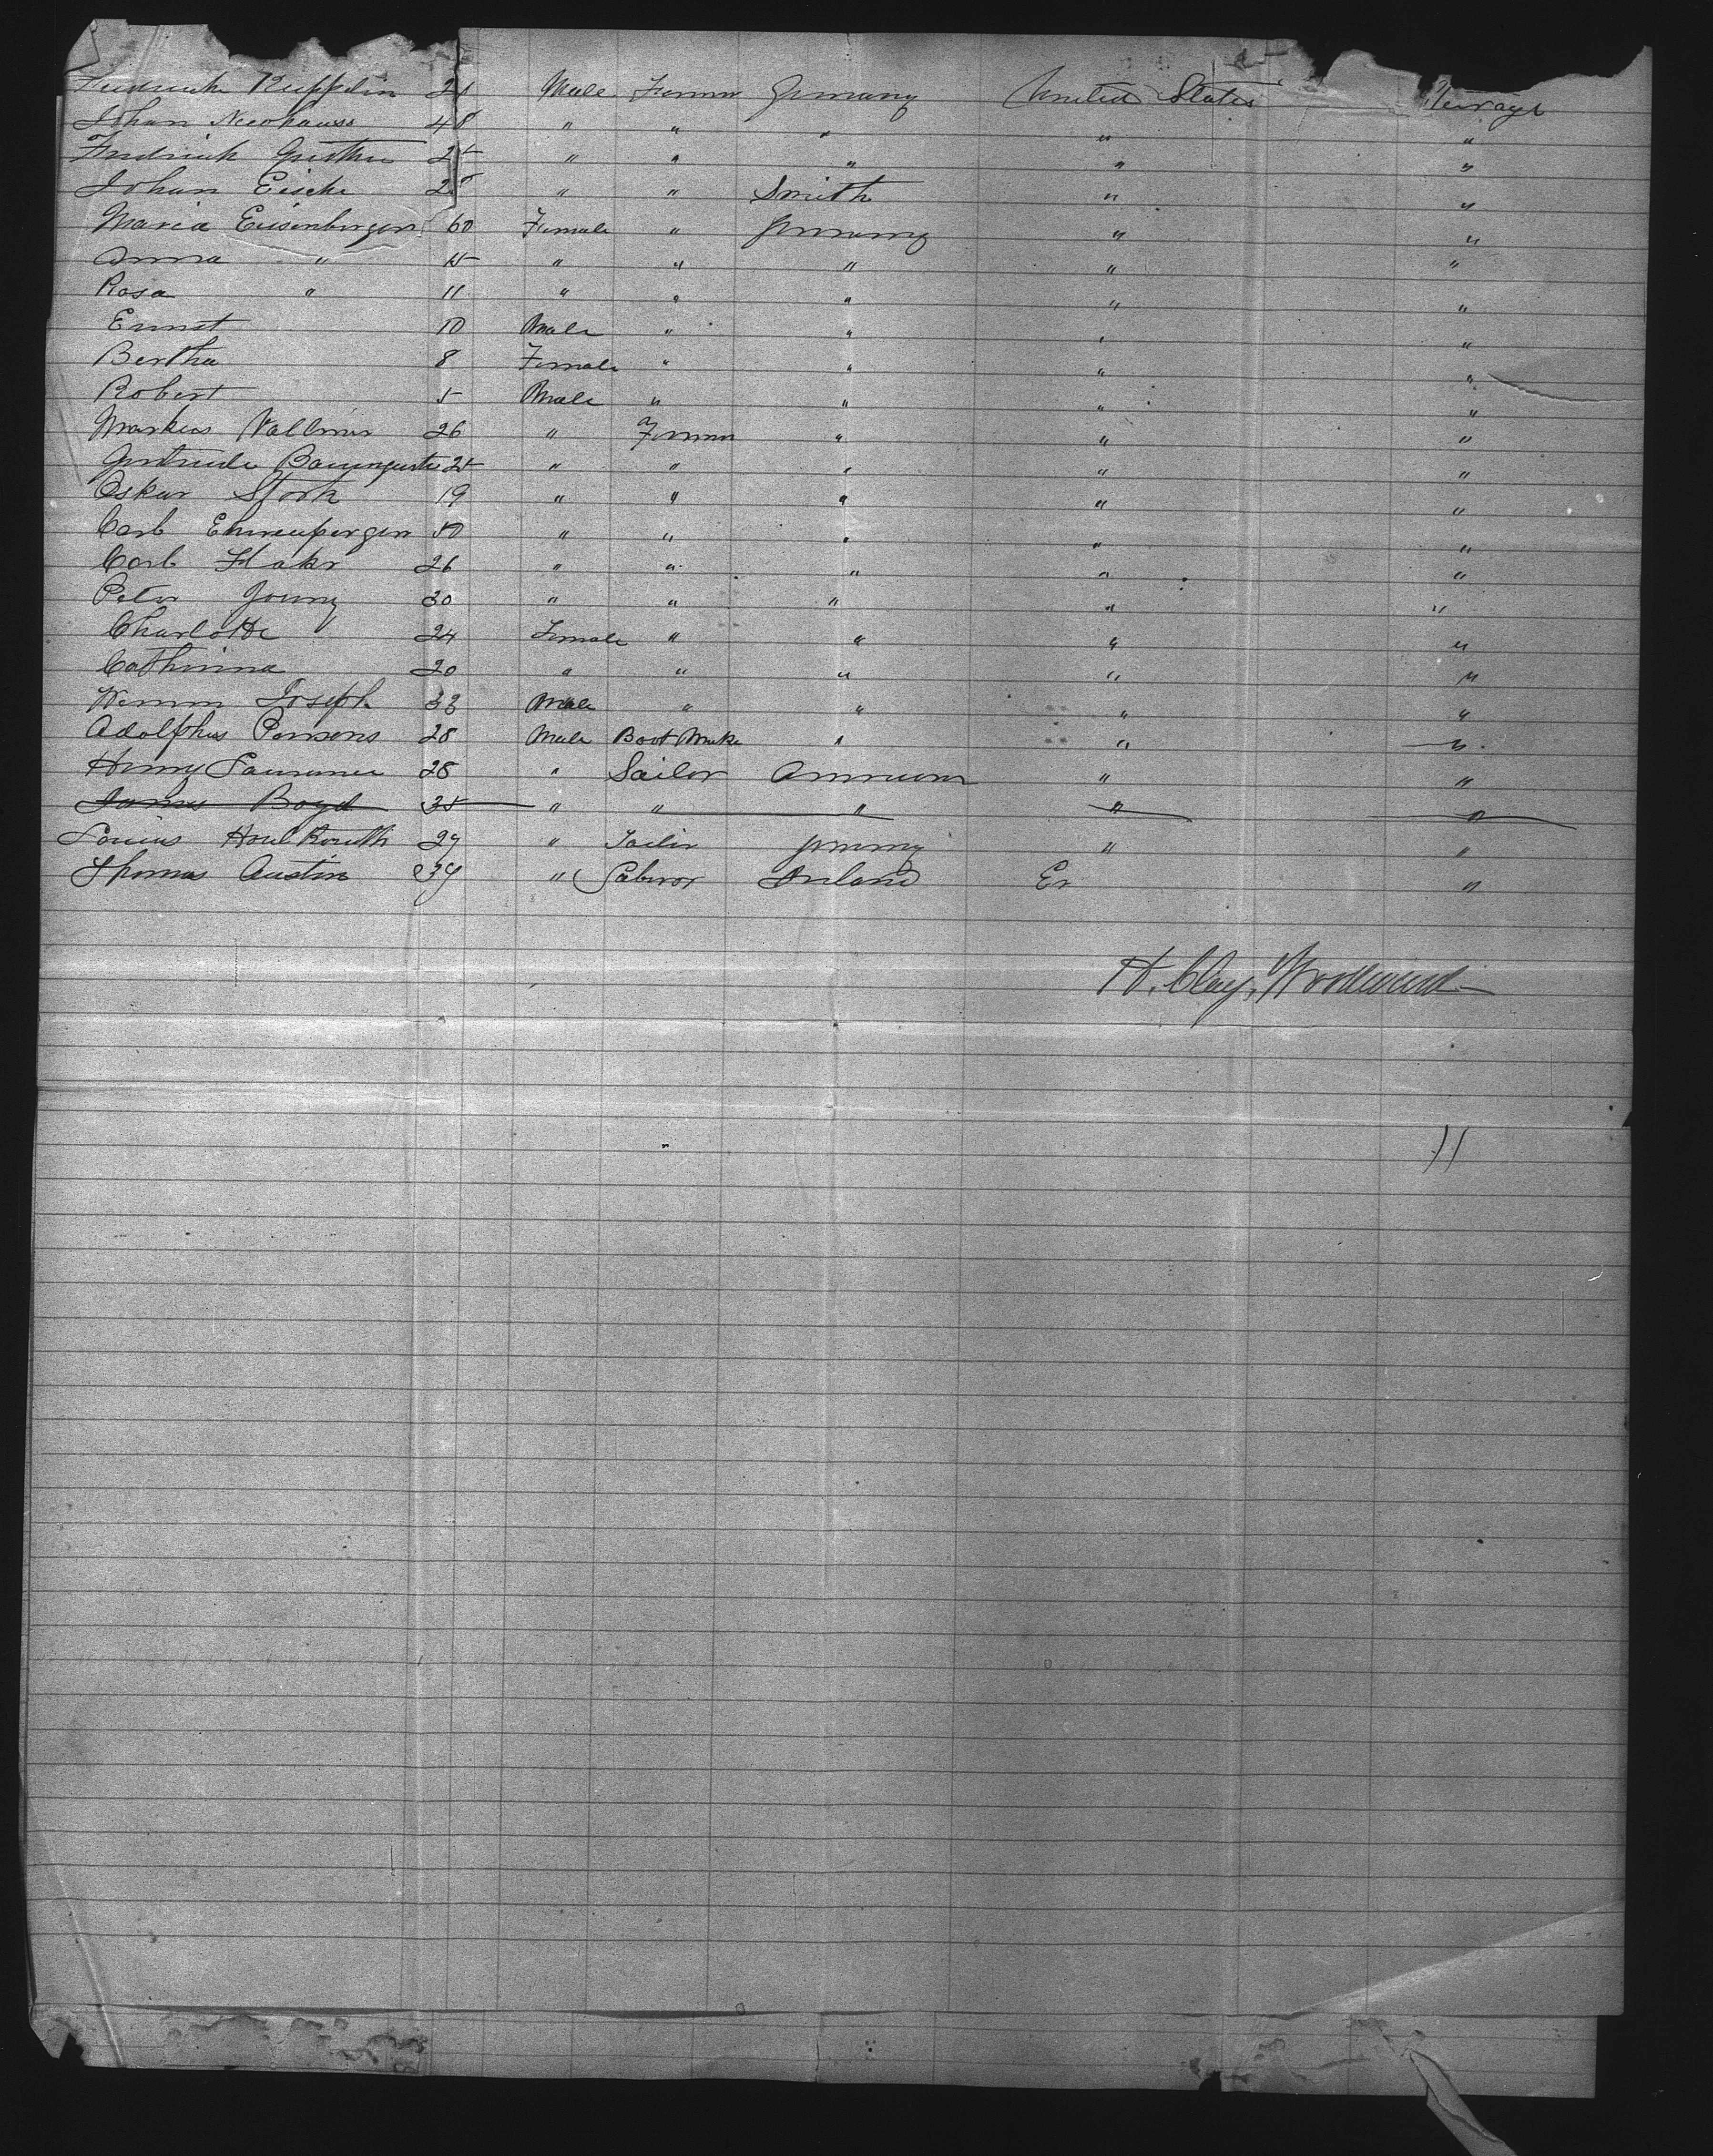 Fredrick Kuppelin 21 Male Farmer Germany United States Steerage
Johan Neuhauss 48 " " " " "
Fredrick 25 " " " " "
Johan Eiske 28 " " Smith " "
Maria Eisenberger 60 Female " Germany " "
Anna " 15 " " " " "
Rosa " 11 " " " " "
Ernst 10 Male " " " "
Bertha 8 Female " " " "
Robert 5 Male " " " "
Markus Vallmer 26 " Farmer " " "
Gertrude 25 " " " " "
Oskar Stork 19 " " " " "
Carl 50 " " " " "
Carl Hakr 26 " " " " "
Peter Young 30 " " " " "
Charlotte 24 Female " " " "
Cathrina 20 " " " " "
Joseph 33 Male " " " "
Adolphus Persons 28 Male Boot Make " " "
Henry 28 " Sailor American " "
James Boyd 35 " " " " "
Louius 27 " Tailor Germany " "
Thomas Austin 39 " Labror Ireland En "
H. Clay. Woodward
11